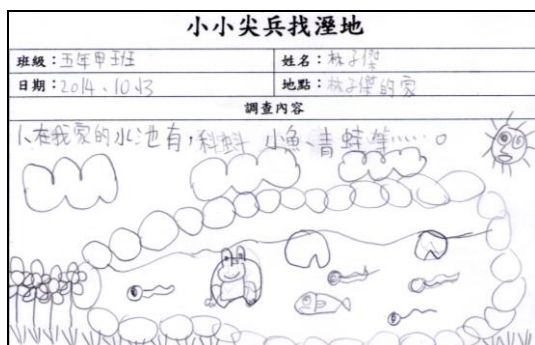 小小尖兵找溼地
班級：五年甲班 姓名：林子傑
日期：2014、10、13 地點：林子傑的家
調查內容
1、在我家的水池有，科蚪 小魚、青蛙等……。